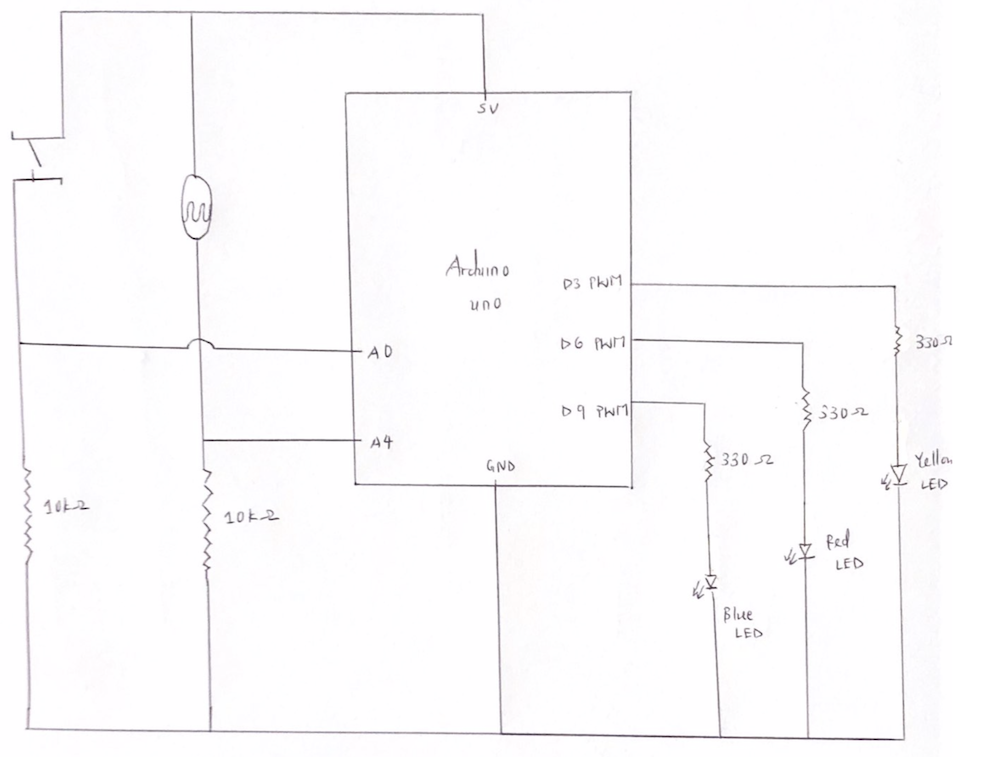 5V
Arduino
uno
D3 PWM
D6 PWM
D9 PWM
A0
A4
GND
10kΩ
10kΩ
330Ω
330Ω
330Ω
Yellow
LED
Red
LED
Blue
LED